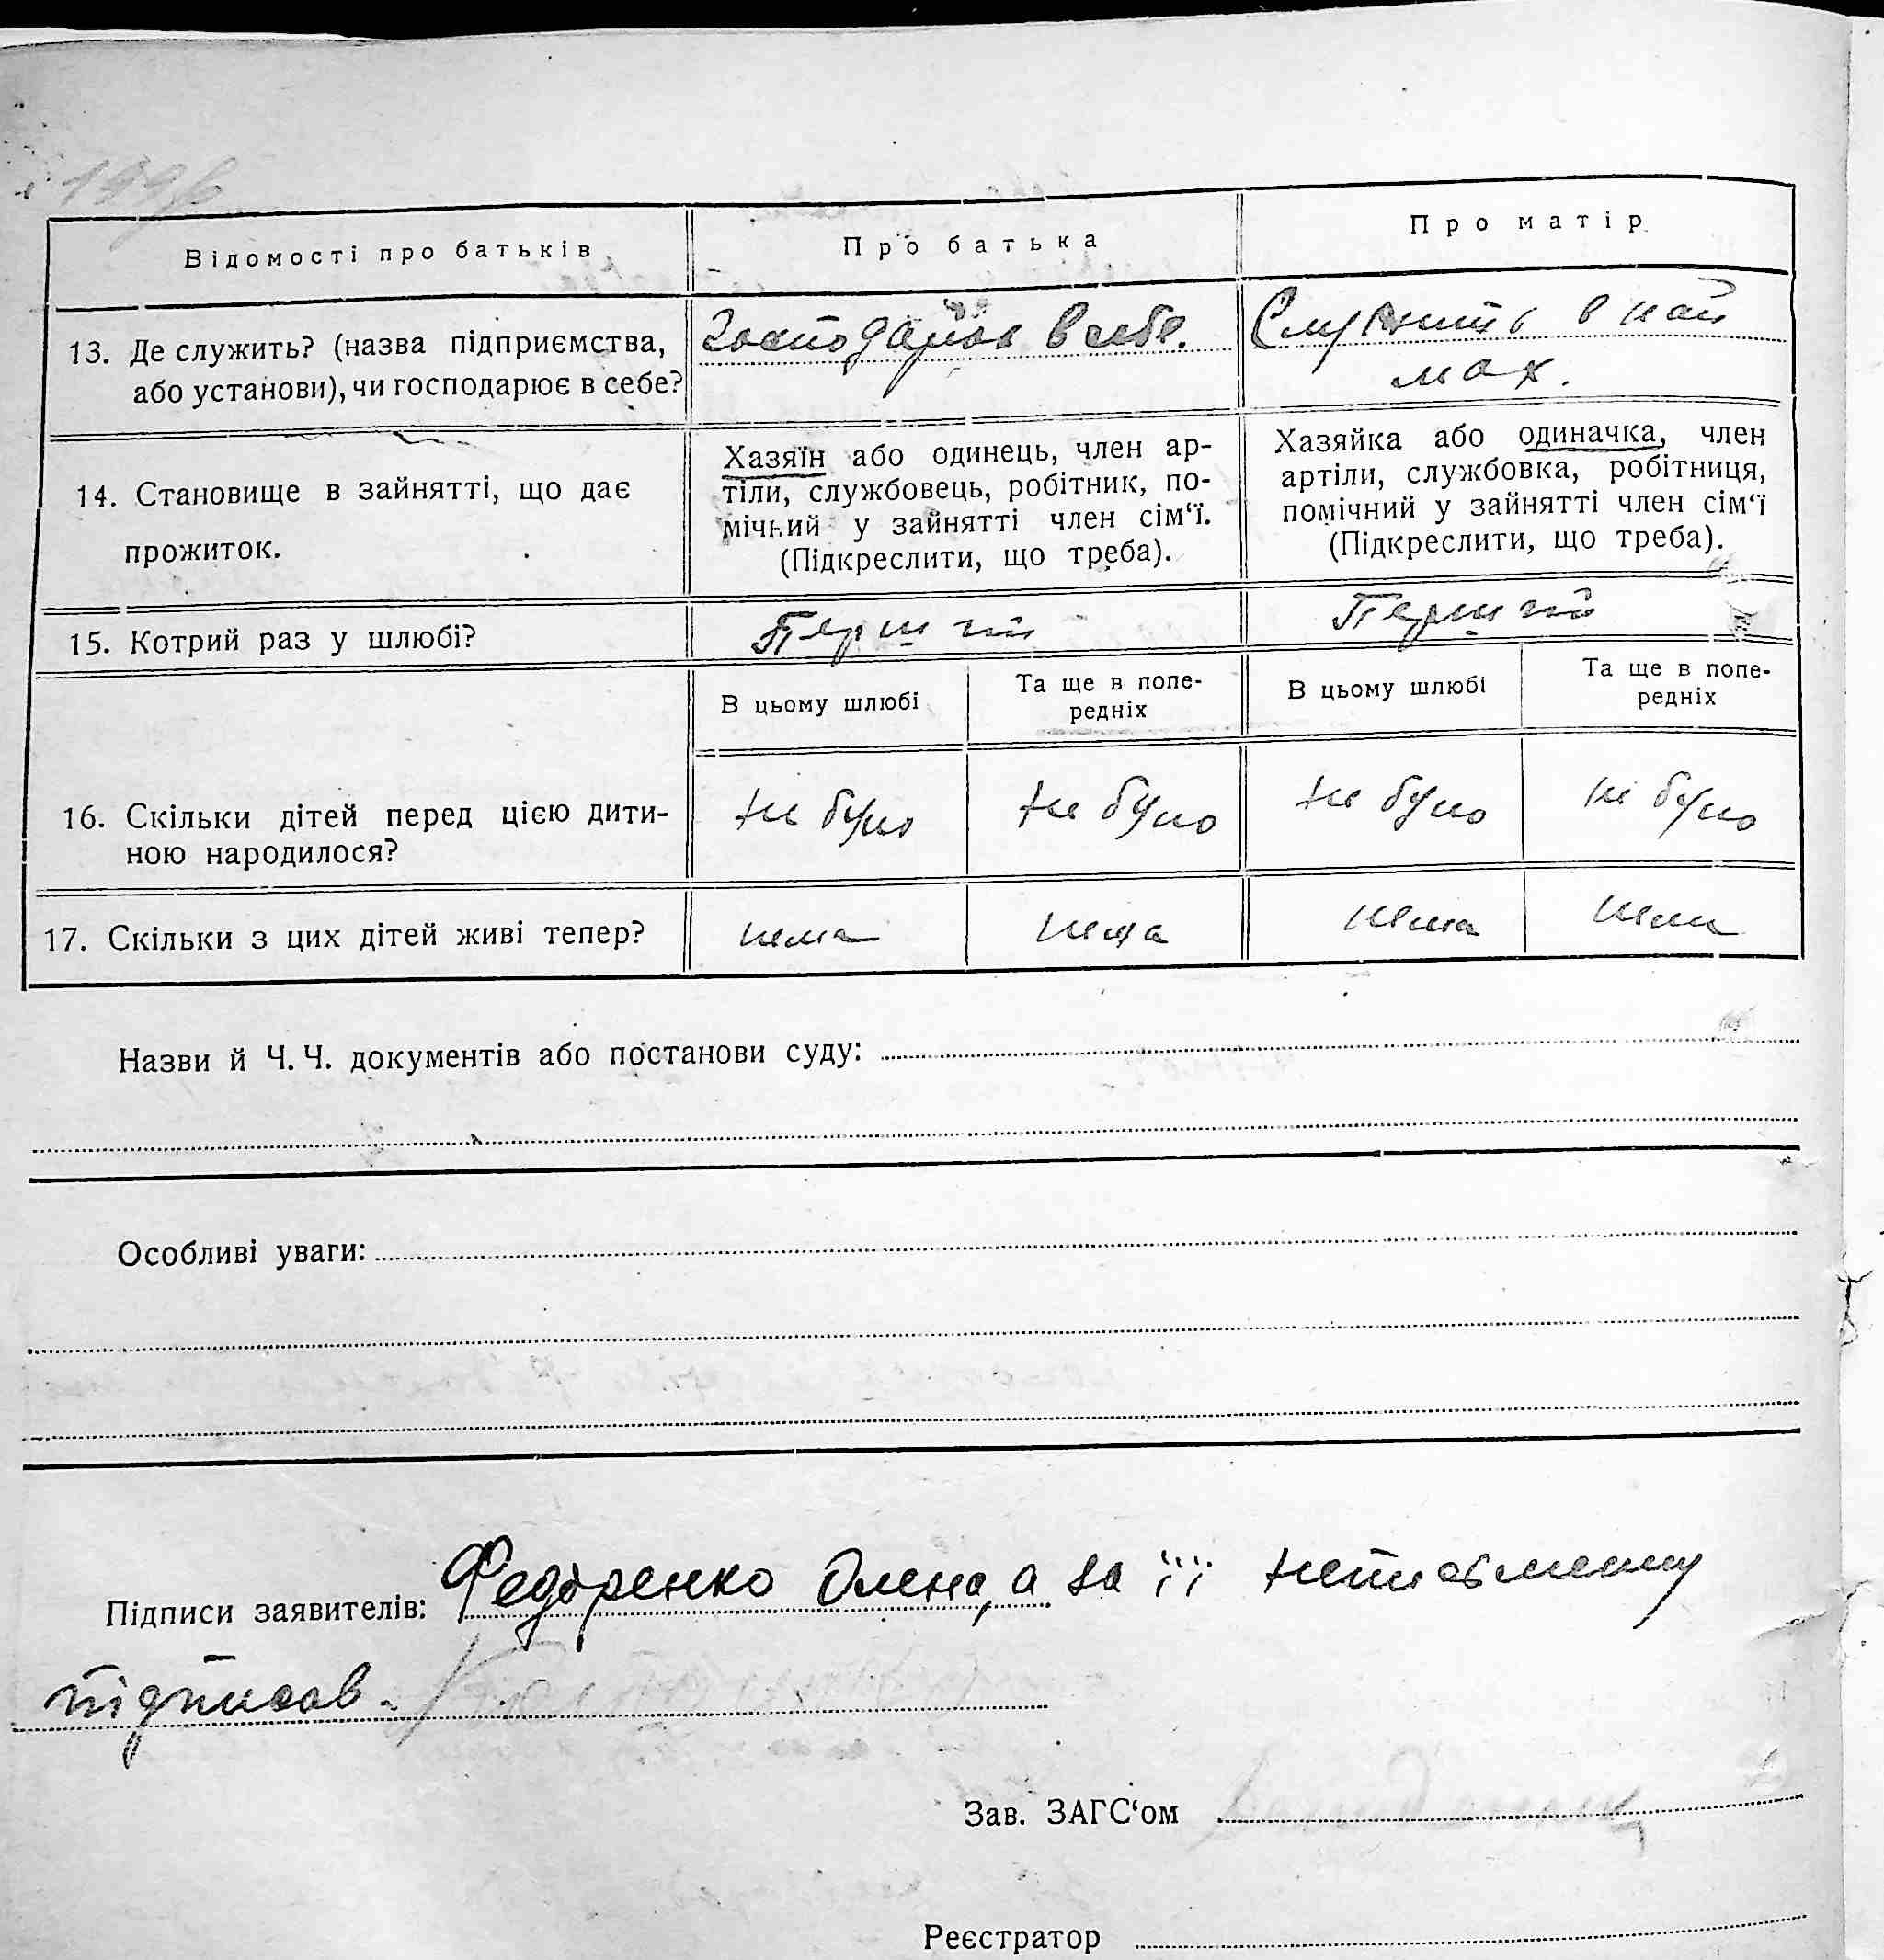 Відомості про батьків
Про батька
Про матір
13. Де служить? (назва підприємства,
або установи), чи господарює в себе?
Господарює в себе.
Служить в най
мах.
14. Становище в зайнятті, що дає
прожиток.
Хазяїн або одинець, член ар-
тіли, службовець, робітник, по-
мічний у зайнятті член сім‘ї.
(Підкреслити, що треба).
Хазяйка або одиначка, член
артіли, службовка, робітниця,
помічний у зайнятті член сім‘ї
(Підкреслити, що треба).
15. Котрий раз у шлюбі?
Перший
Перший
В цьому шлюбі
Та ще в попе-
редніх
В цьому шлюбі
Та ще в попе-
редніх
16. Скільки дітей перед цією дити-
ною народилося?
не було
не було
не було
не було
17. Скільки з цих дітей живі тепер?
нема
нема
нема
нема
Назви й Ч. Ч. документів або постанови суду:
Особливі уваги:
Підписи заявителів: Федоренко Олена, а за її неписьменну
підписав
Зав. ЗАГС‘ом
Реєстратор